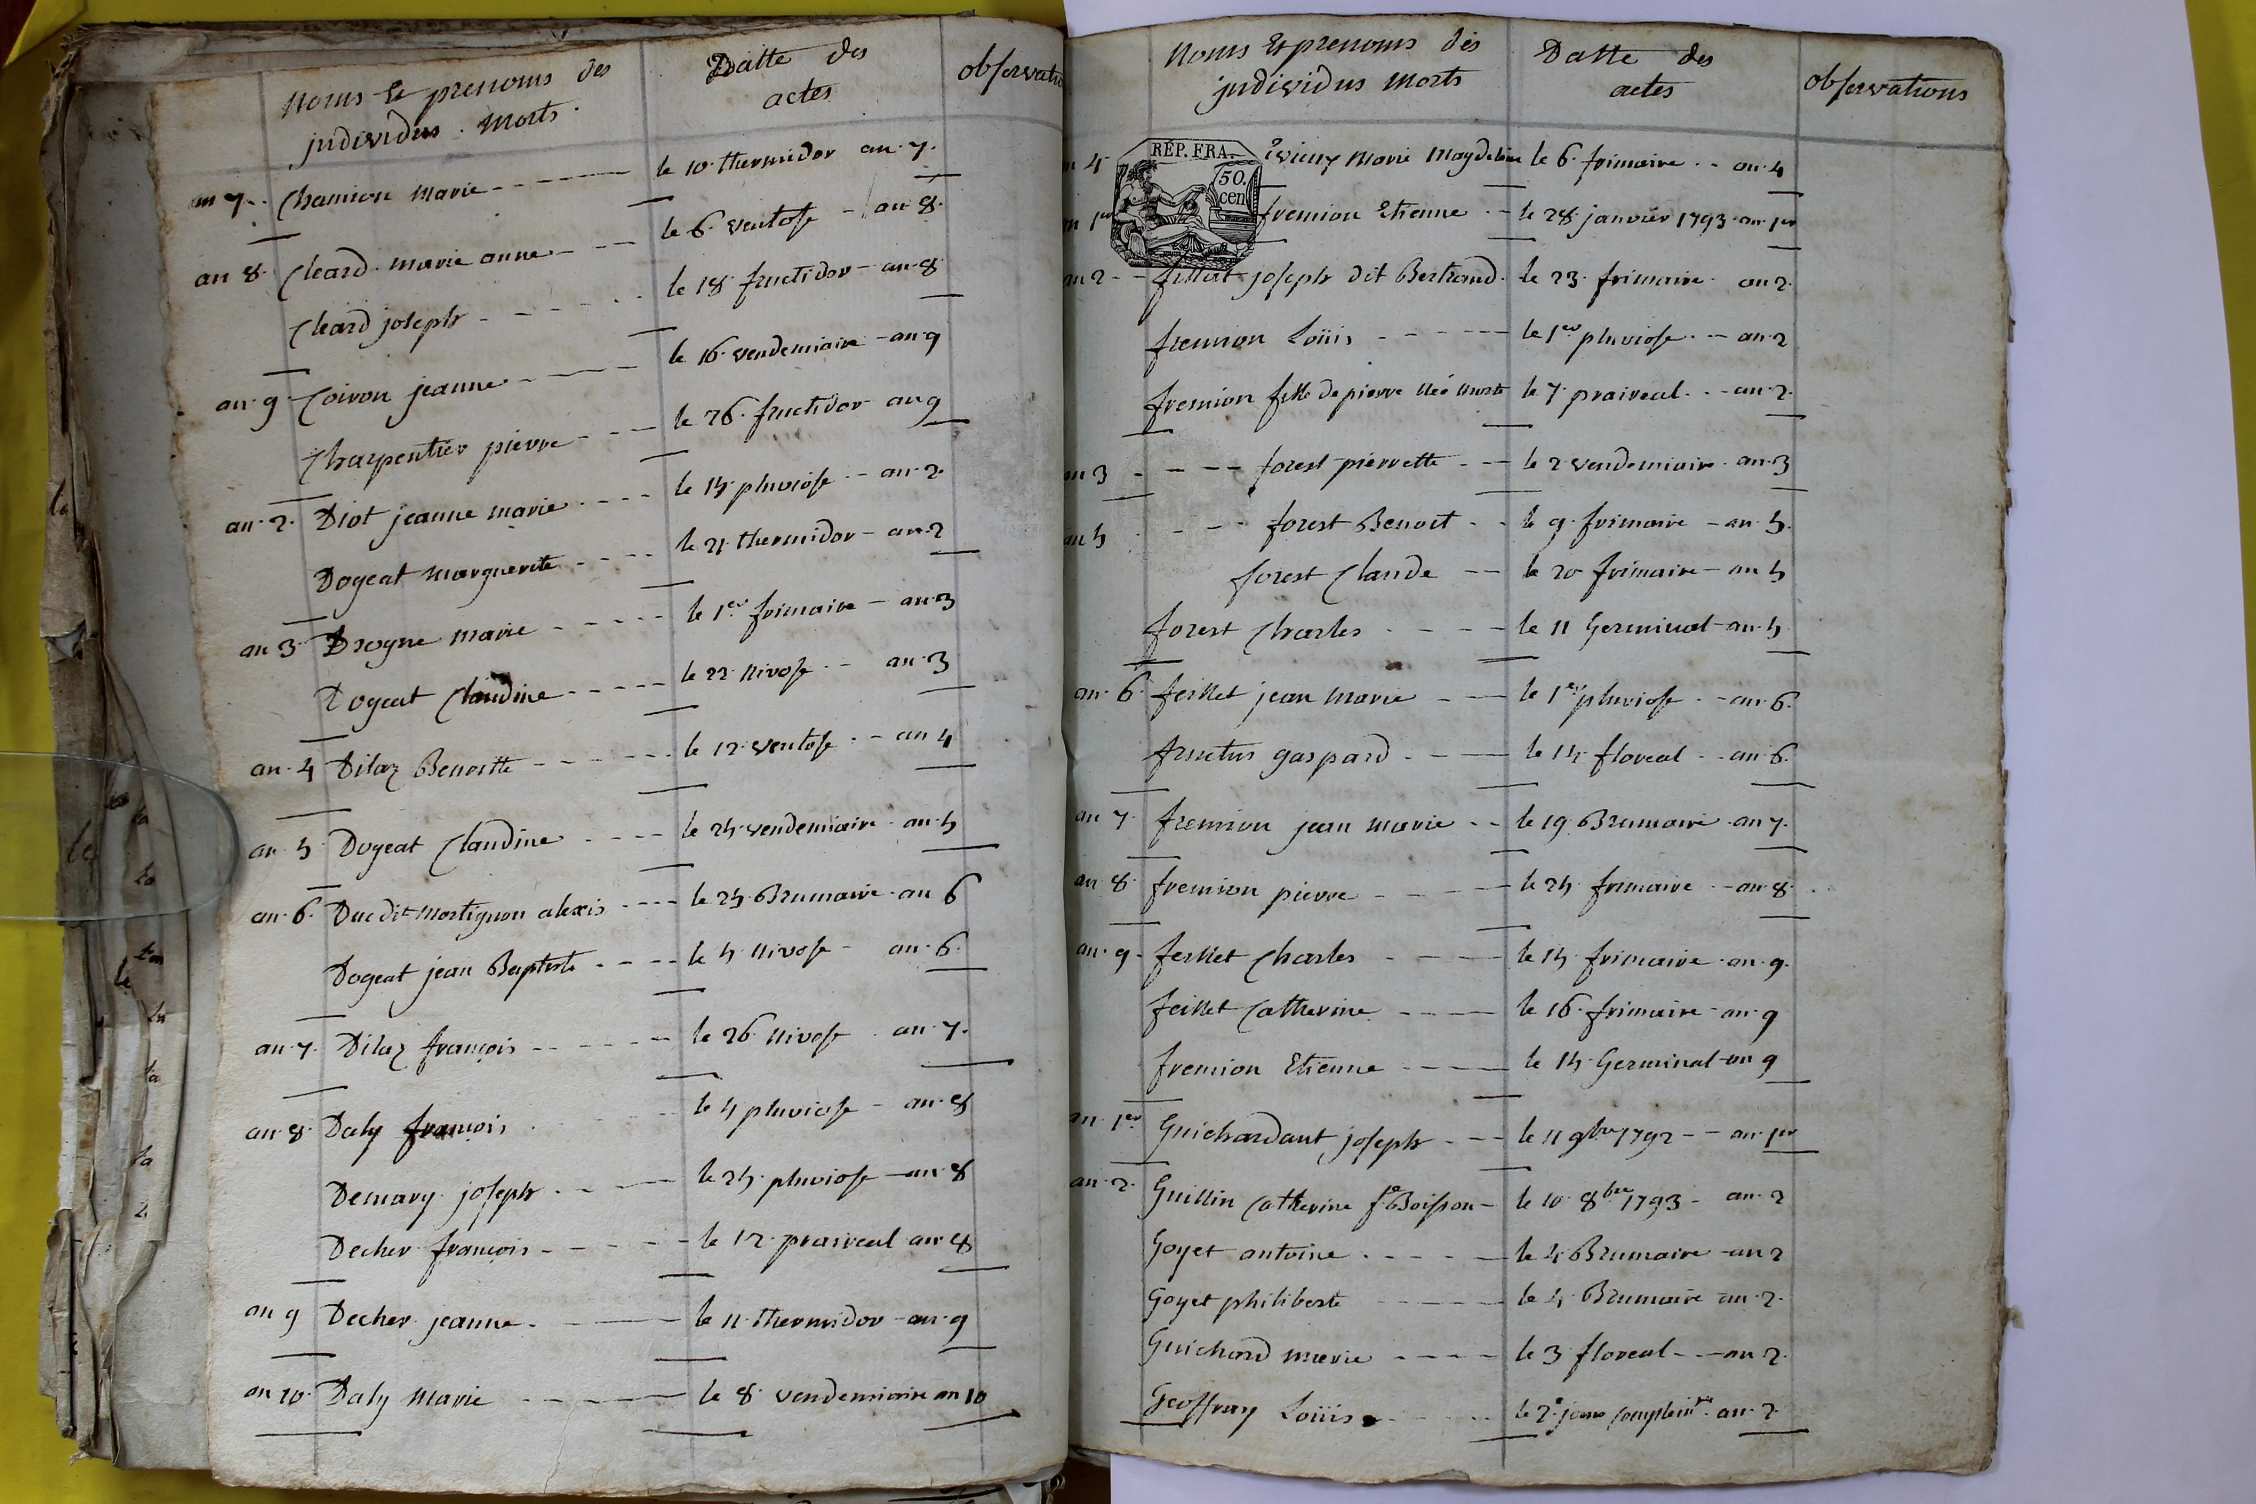 Noms Et prenoms des
individus Morts
Datte des
actes
observatio
an 7 Chamion marie le 10 thermidor an 7
an 8 Cleard marie anne le 6 ventose an 8
Cleard joseph le 18 fructidor an 8
an 9 Coiron jeanne le 16 vendemiaire an 9
Charpentier pierre le 26 fructidor an 9
an 2 Diot jeanne marie le 15 pluviose an 2
Dogeat marguerite le 21 thermidor an 2
an 3 Drogne marie le 1er frimaire an 3
Dogeat Claudine le 22 nivose an 3
an 4 Dilaz Benoitte le 12 ventose an 4
an 5 Dogeat Claudine le 25 vendemiaire an 5
an 6 Duc dit Mortignon alexis le 25 Brumaire an 6
Dogeat jean Baptiste le 5 nivose an 6
an 7 Dilaz françois le 26 nivose an 7
an 8 Daly françois le 5 pluviose an 8
Demary joseph le 25 pluviose an 8
Decher françois le 12 praireal an 8
an 9 Decher jeanne le 11 thermidor an 9
an 10 Daly Marie le 8 vendemiaire an 10
Noms Et prenoms des
individus Morts
Datte des
actes
observations
REP. FRA.
50.
cen
an 4 Marie Magdelaine le 6 frimaire an 4
an 1er fremion Etienne le 28 janvier 1793 an 1er
an 2 joseph dit Bertrand le 23 frimaire an 2
fremion Loüis le 1er pluviose an 2
fremion fille de pierre née morte le 7 praireal an 2
an 3 forest pierrette le 2 vendemiaire an 3
an 5 forest Benoit le 9 frimaire an 5
forest Claude le 20 frimaire an 5
forest Charles le 11 Germinal an 5
an 6 feillet jean marie le 1er pluviose an 6
fructus gaspard le 15 floreal an 6
an 7 fremion jean marie le 19 Brumaire an 7
an 8 fremion pierre le 25 frimaire an 8
an 9 feillet Charles le 15 frimaire an 9
feillet Catherine le 16 frimaire an 9
fremion Etienne le 15 Germinal an 9
an 1er Guichardant joseph le 11 9bre 1792 an 1er
an 2 Guillin Catherine fe Boisson le 10 8bre 1793 an 2
Goyet antoine le 4 Brumaire an 2
Goyet philiberte le 4 Brumaire an 2
Guichard marie le 3 floreal an 2
Geoffray Loüis le 2e jour complemre an 2